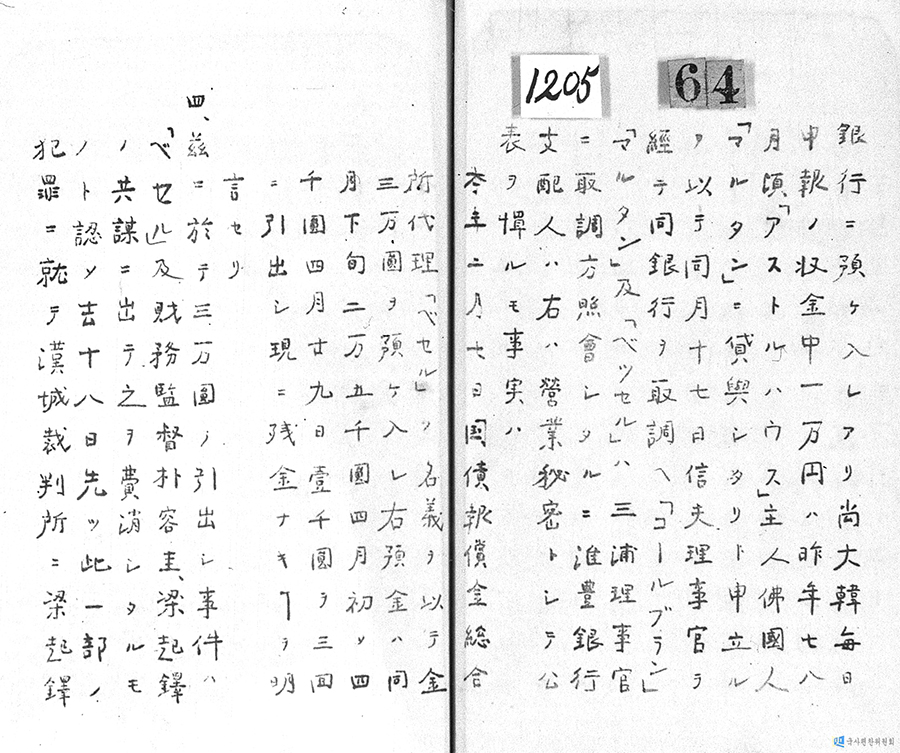 1205
64
銀行ニ預ケ入レアリ尚大韓每日
申報ノ収金中一万円ハ昨年七八
月頃「アストルハウス」主人佛國人
「マルタン」ニ貸與シタリト申立ル
ヲ以テ同月十七日信夫理事官ヲ
經テ同銀行ヲ取調ヘ「コールブラン」
「マルタン」及「ベツセル」ハ三浦理事官
ニ取調方照會シタルニ淮豊銀行
支配人ハ右ハ營業秘密トシテ公
表ヲ憚ルモ事実ハ
本年二月七日國債報償金総合
所代理「ベセル」ノ名義ヲ以テ金
三万圓ヲ預ケ入レ右預金ハ同
月下旬二万五千圓四月初ツ四
千圓四月廿九日壹千圓ヲ三回
ニ引出シ現ニ残金ナキヿヲ明
言セリ
四、茲ニ於テ三万圓ノ引出シ事件ハ
「ベセル」及財務監督朴容圭、梁起鐸
ノ共謀ニ出テ之ヲ費消シタルモ
ノト認メ去十八日先ツ此一部ノ
犯罪ニ就テ漢城裁判所ニ梁起鐸
국사편찬위원회